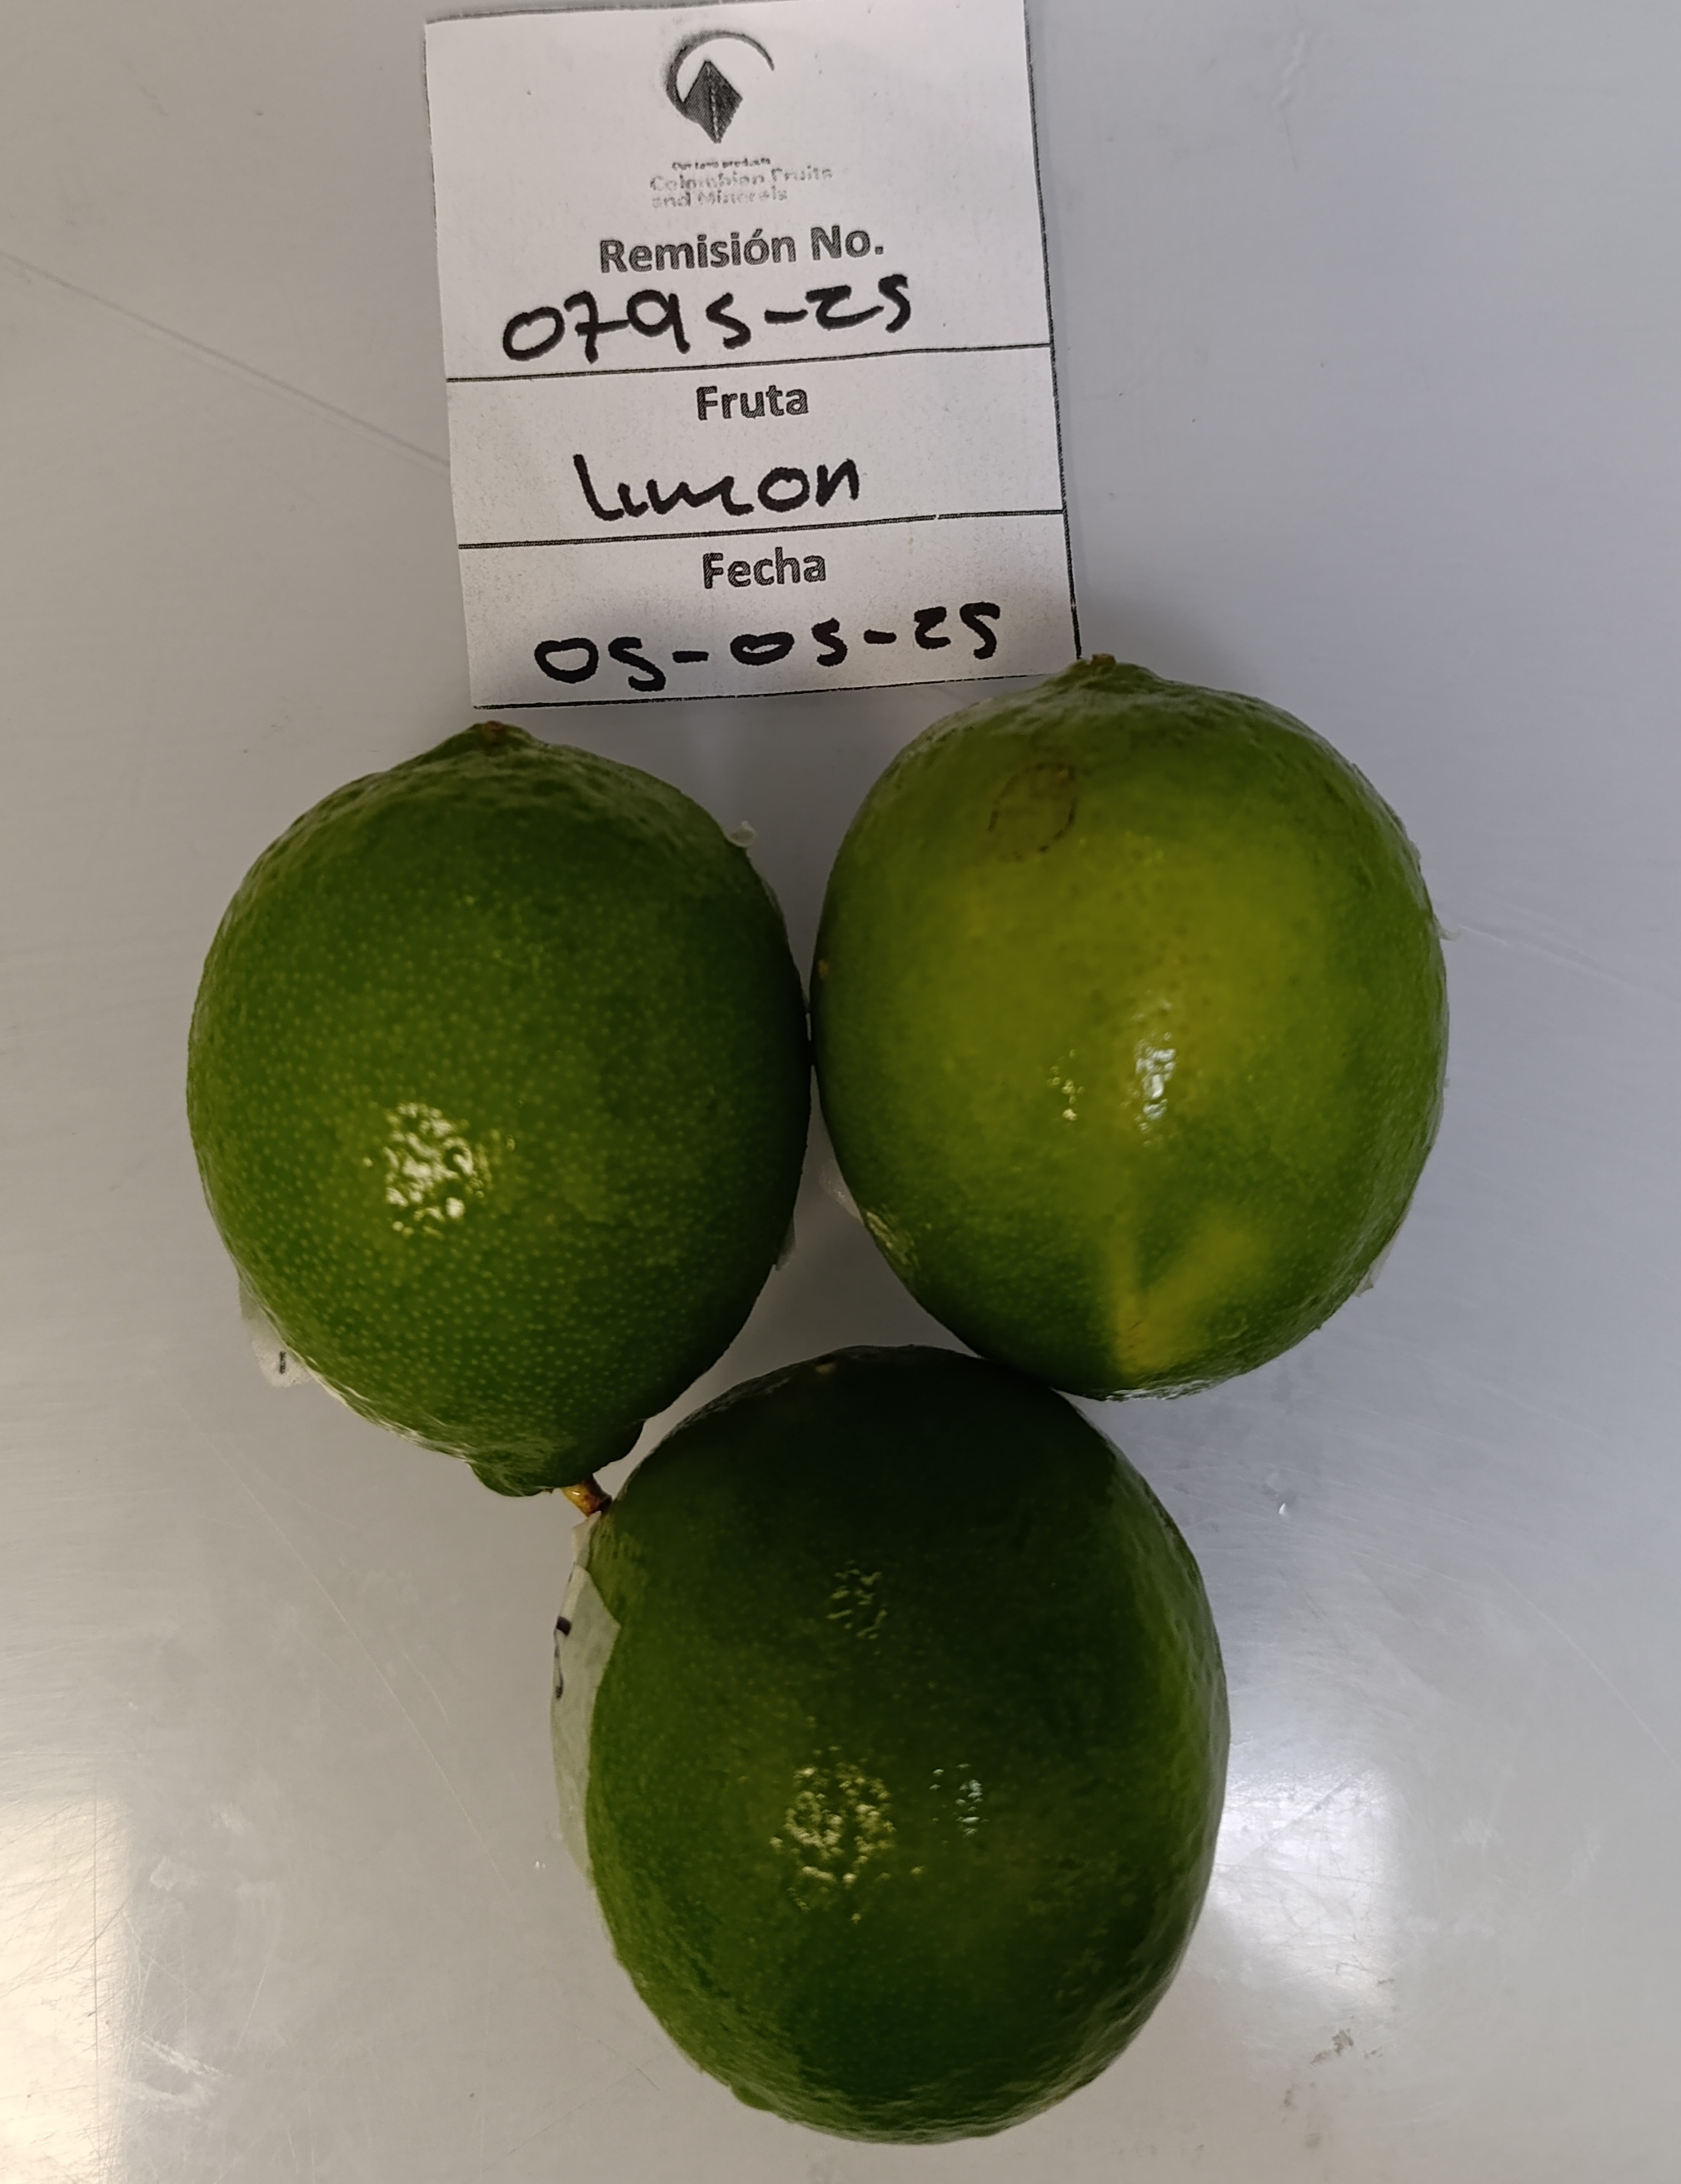 Our farm products
Colombian Fruits
and Minerals
Remisión No.
0795-25
Fruta
limon
Fecha
05-05-25